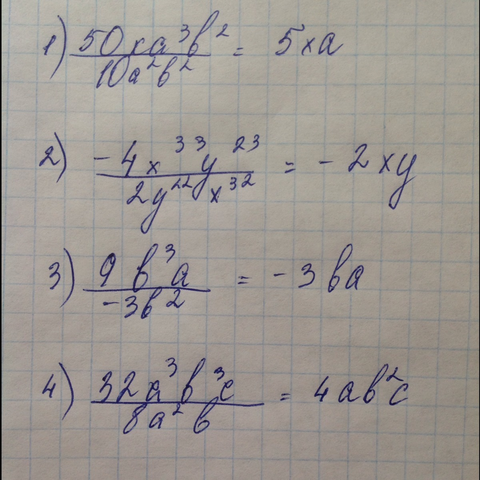 1) 50xa³b² / 10a²b² = 5xa
2) -4x³³y²³ / 2y²²x³² = -2xy
3) 9b³a / -3b² = -3ba
4) 32a³b³c / 8a²b = 4ab²c